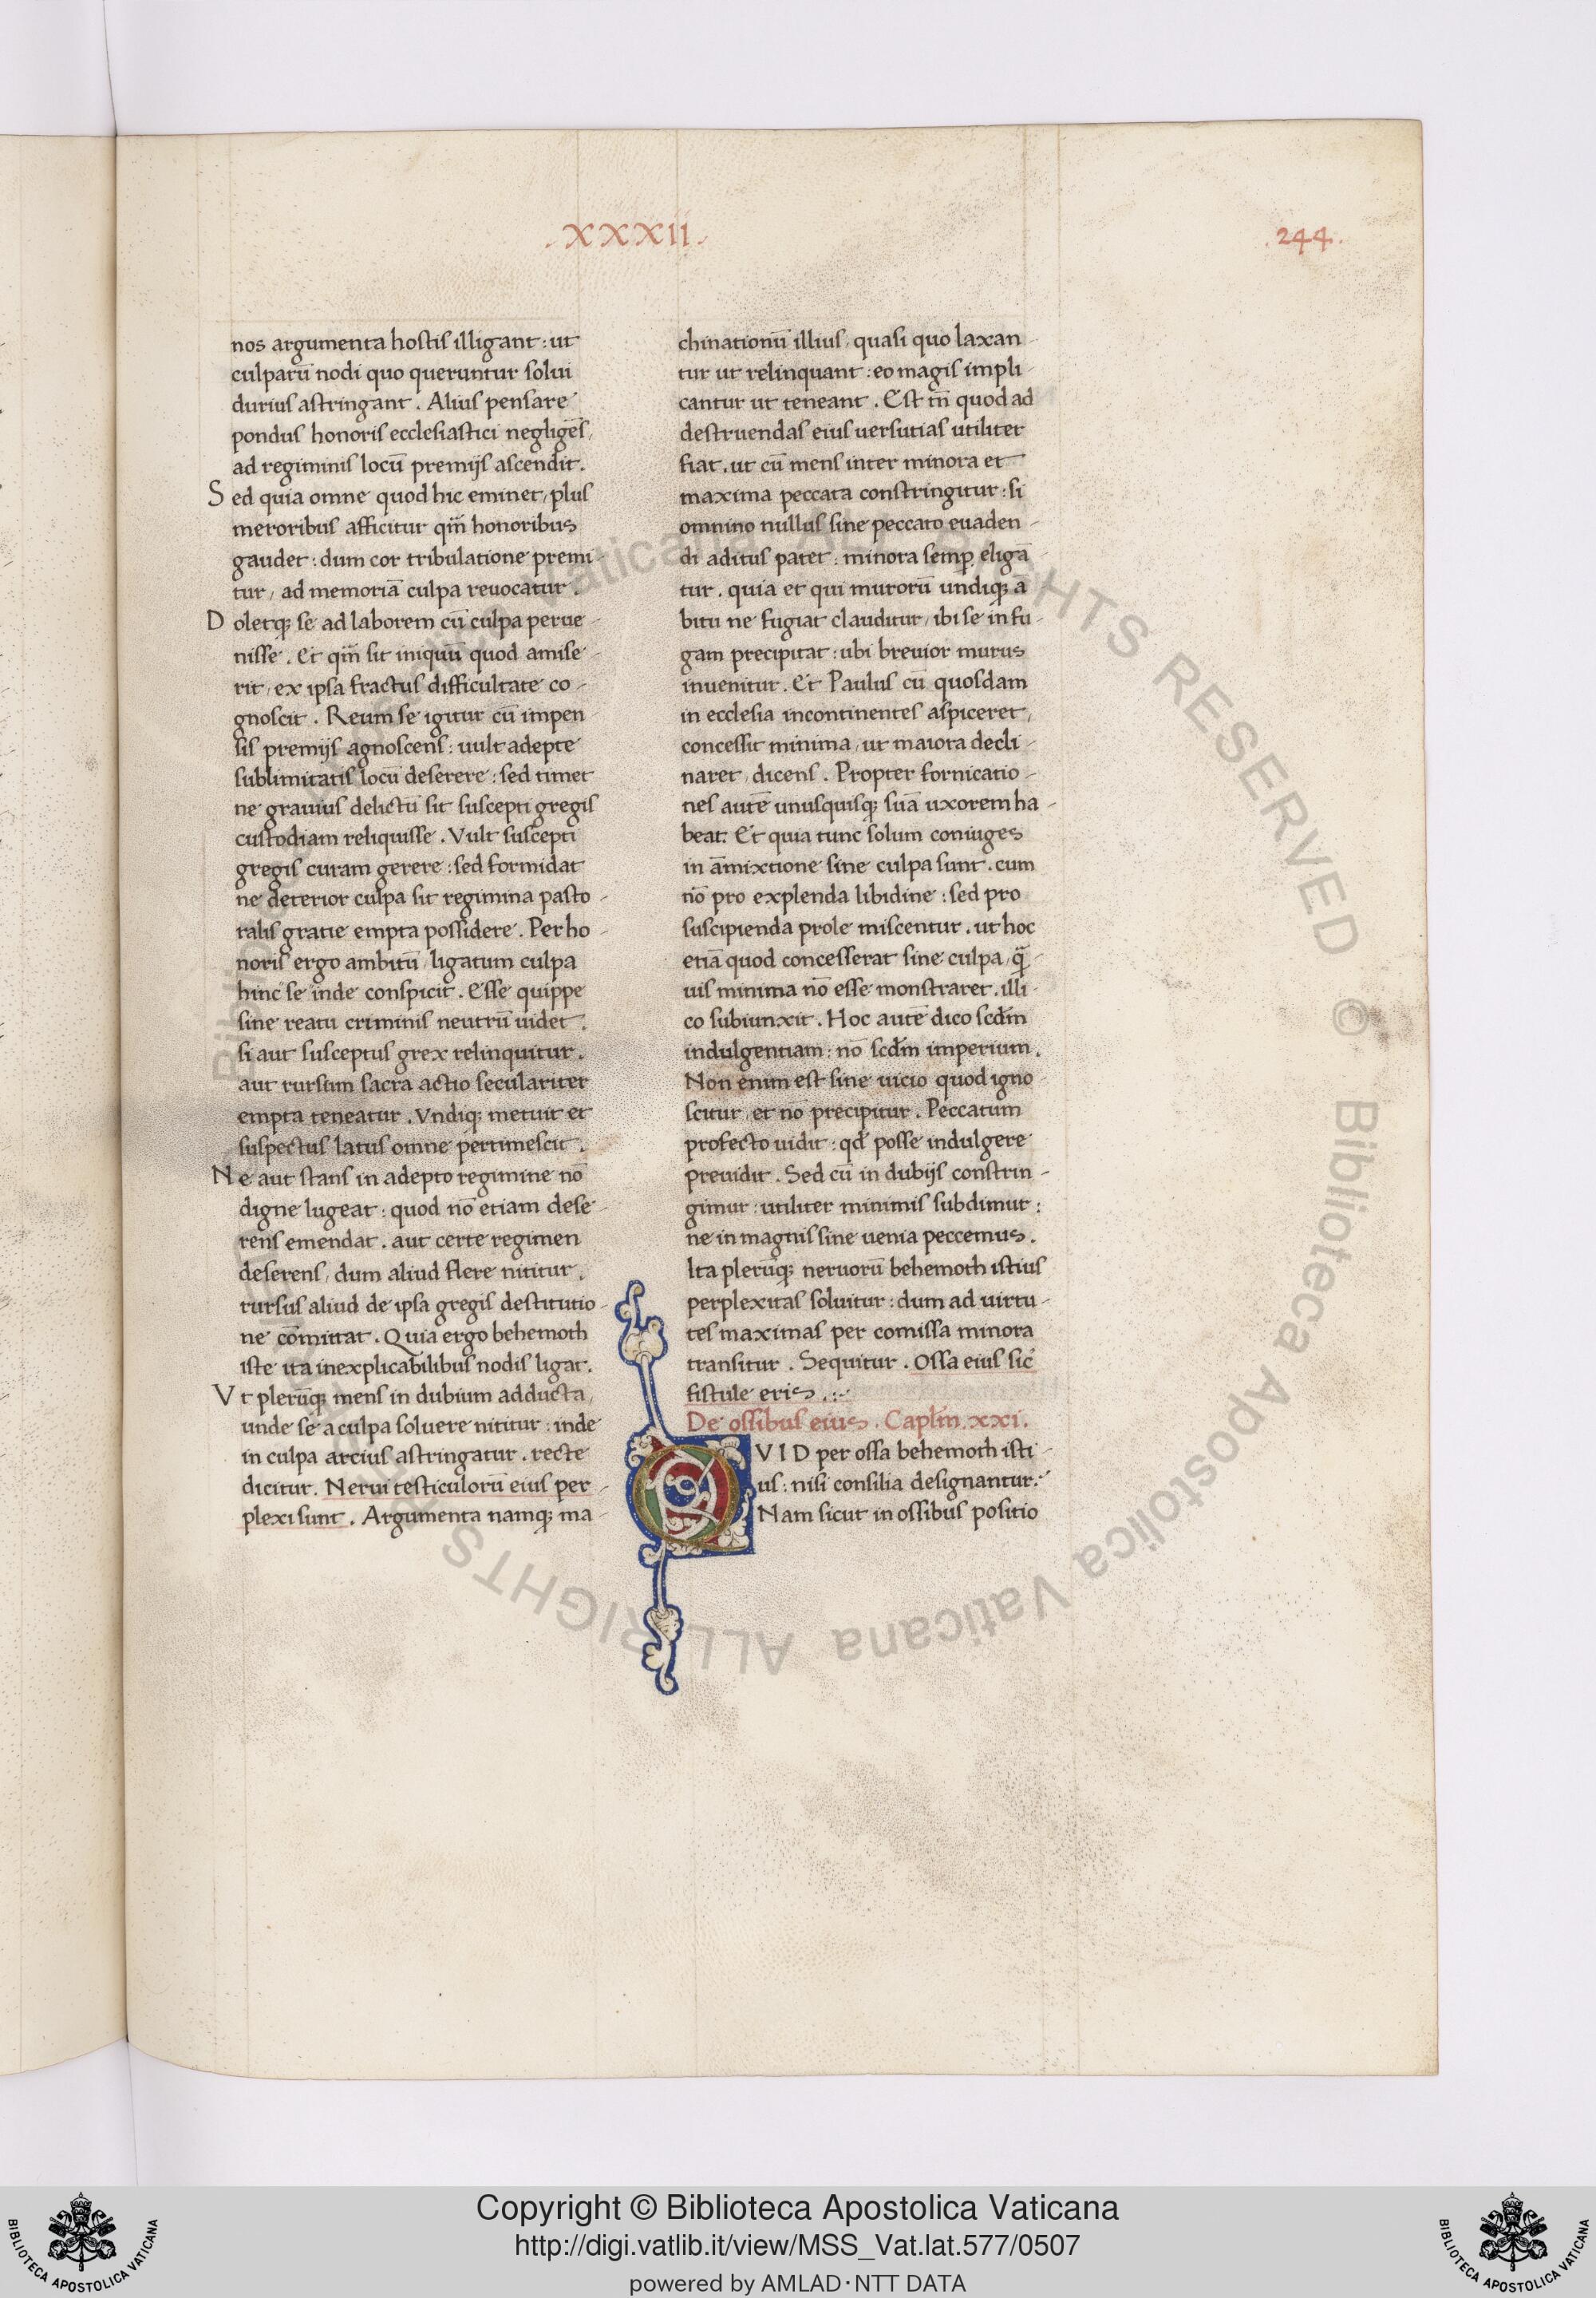 .XXXII.
.244.
nos argumenta hostis illigant : ut
culparū nodi quo queruntur solui
durius astringant . Alius pensare
pondus honoris ecclesiastici negligēs,
ad regiminis locū premijs ascendit.
Sed quia omne quod hic eminet, plus
meroribus afficitur qm̄ honoribus
gaudet : dum cor tribulatione premi-
tur, ad memoriā culpa reuocatur .
Doletq; se ad laborem cū culpa perue-
nisse . Et qm̄ sit iniquū quod amise-
rit, ex ipsa fractus difficultate co-
gnoscit . Reum se igitur cū impen-
sis premijs agnoscens : uult adepte
sublimitatis locū deserere : sed timet
ne grauius delictū sit suscepti gregis
custodiam reliquisse . Vult suscepti
gregis curam gerere : sed formidat
ne deterior culpa sit regimina pasto-
ralis gratie empta possidere . Per ho-
noris ergo ambitū, ligatum culpa
hinc se inde conspicit . Esse quippe
sine reatu criminis neutrū uidet .
si aut susceptus grex relinquitur .
aut rursum sacra actio seculariter
empta teneatur . Vndiq; metuit et
suspectus latus omne pertimescit .
Ne aut stans in adepto regimine nō
digne lugeat : quod nō etiam dese-
rens emendat . aut certe regimen
deserens, dum aliud flere nititur .
rursus aliud de ipsa gregis destitutio-
ne cōmittat . Quia ergo behemoth
iste ita inexplicabilibus nodis ligat.
Vt plerūq; mens in dubium adducta,
unde se a culpa soluere nititur : inde
in culpa arcius astringatur . recte
dicitur . Nerui testiculorū eius per-
plexi sunt . Argumenta namq; ma-
chinationū illius, quasi quo laxan-
tur ut relinquant : eo magis impli-
cantur ut teneant . Est tn̄ quod ad
destruendas eius uersutias utiliter
fiat . ut cū mens inter minora et
maxima peccata constringitur : si
omnino nullus sine peccato euaden-
di aditus patet : minora semp̲ eligā-
tur . quia et qui murorū undiq; ā-
bitu ne fugiat clauditur, ibi se in fu-
gam precipitat : ubi breuior murus
inuenitur . Et Paulus cū quosdam
in ecclesia incontinentes aspiceret,
concessit minima, ut maiora decli-
naret, dicens . Propter fornicatio-
nes autē unusquisq; suā uxorem ha-
beat. Et quia tunc solum coniuges
in āmixtione sine culpa sunt . cum
nō pro explenda libidine : sed pro
suscipienda prole miscentur . ut hoc
etiā quod concesserat sine culpa, q̄-
uis minima nō esse monstraret . illi-
co subiunxit . Hoc autē dico scd̄m
indulgentiam : nō scd̄m imperium .
Non enim est sine uicio quod igno-
scitur, et nō precipitur . Peccatum
profecto uidit : qd̄ posse indulgere
preuidit . Sed cū in dubijs constrin-
gimur : utiliter minimis subdimur :
ne in magnis sine uenia peccemus .
Ita plerūq; neruorū behemoth istius
perplexitas soluitur : dum ad uirtu-
tes maximas per comissa minora
transitur . Sequitur . Ossa eius sic̄
fistule eris .:-
De ossibus eius . Caplm̄ . xxi.
QVID per ossa behemoth isti-
us : nisi consilia designantur:
Nam sicut in ossibus positio
Copyright © Biblioteca Apostolica Vaticana
http://digi.vatlib.it/view/MSS_Vat.lat.577/0507
powered by AMLAD·NTT DATA
BIBLIOTECA APOSTOLICA VATICANA
BIBLIOTECA APOSTOLICA VATICANA
© Biblioteca Apostolica Vaticana ALL RIGHTS RESERVED